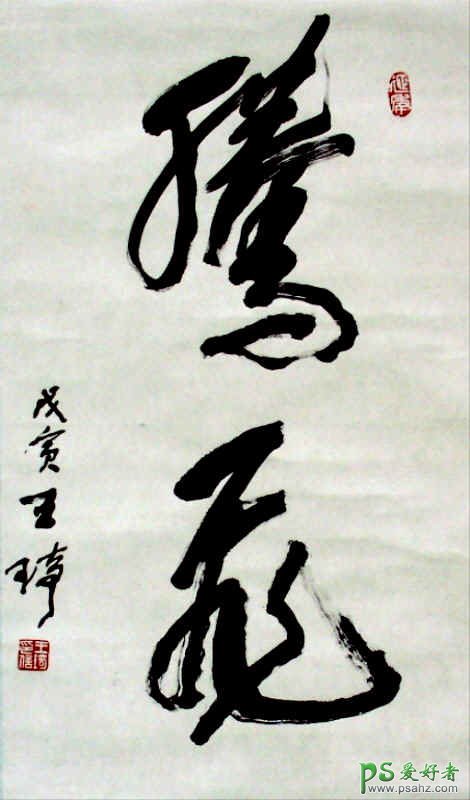 騰飛
戊寅王
PS爱好者
www.psahz.com